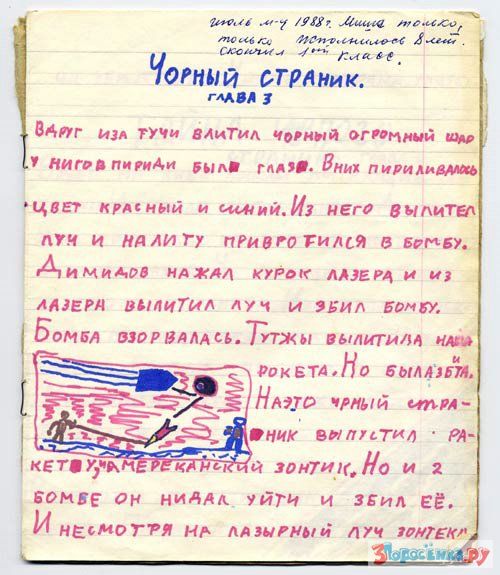 июль м-ц 1988г. Миша только,
только исполнилось 8 лет.
скончил 1ый класс.
ЧОРНЫЙ СТРАНИК.
ГЛАВА 3
ВДРУГ ИЗА ТУЧИ ВЛИТИЛ ЧОРНЫЙ ОГРОМНЫЙ ШАР
У НИГО ВПИРИДИ БЫЛ ГЛАЗ. ВНИХ ПИРИЛИВАЛОСЬ
ЦВЕТ КРАСНЫЙ И СИНИЙ. ИЗ НЕГО ВЫЛИТЕЛ
ЛУЧ И НАЛИТУ ПРИВРОТИЛСЯ В БОМБУ.
ДИМИДОВ НАЖАЛ КУРОК ЛАЗЕРА И ИЗ
ЛАЗЕРА ВЫЛИТИЛ ЛУЧ И ЗБИЛ БОМБУ.
БОМБА ВЗОРВАЛАСЬ. ТУТЖЫ ВЫЛИТИЛА НАША
РОКЕТА. НО БЫЛАЗБИТА.
НАЭТО ЧРНЫЙ СТРА-
НИК ВЫПУСТИЛ РА-
КЕТУ, АМЕРЕКАНСКИЙ ЗОНТИК. НО И 2
БОМБЕ ОН НИДАЛ УЙТИ И ЗБИЛ ЕЁ.
И НЕСМОТРЯ НА ЛАЗЫРНЫЙ ЛУЧ ЗОНТЕКА
3Поросёнка.РУ